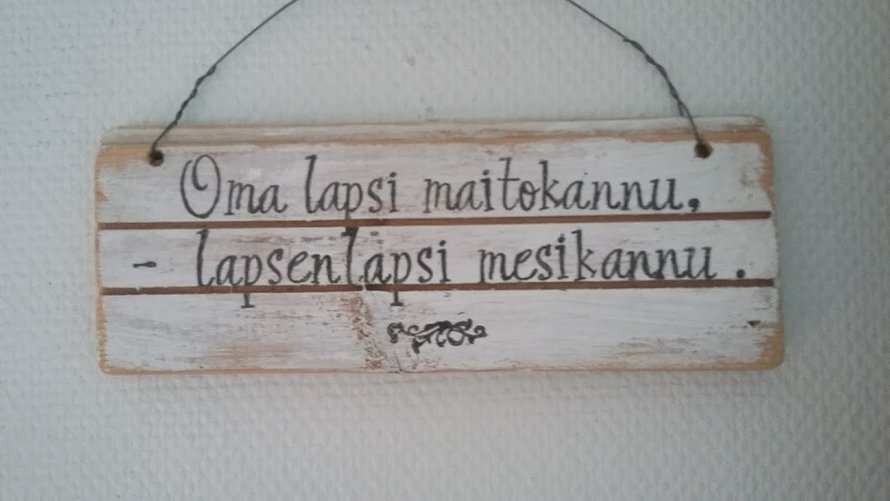 Oma lapsi maitokannu,
- lapsenlapsi mesikannu.